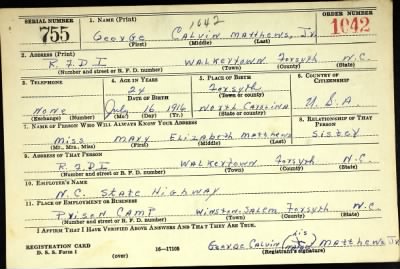 SERIAL NUMBER 1. NAME (Print) ORDER NUMBER
1042
755 George Calvin Matthews, Jr. 1042
(First) (Middle) (Last)
2. ADDRESS (Print)
R.F.D.1 Walkertown Forsyth N.C.
(Number and street or R. F. D. number) (Town) (County) (State)
3. TELEPHONE 4. AGE IN YEARS 5. PLACE OF BIRTH 6. COUNTRY OF CITIZENSHIP
24 Forsyth
DATE OF BIRTH (Town or county)
None July 16, 1916 North Carolina U.S.A
(Exchange) (Number) (Mo.) (Day) (Yr.) (State or country)
7. NAME OF PERSON WHO WILL ALWAYS KNOW YOUR ADDRESS 8. RELATIONSHIP OF THAT PERSON
Miss Mary Elizabeth Matthews Sister
(Mr., Mrs., Miss) (First) (Middle) (Last)
9. ADDRESS OF THAT PERSON
R.F.D.1 Walkertown Forsyth N.C.
(Number and street or R. F. D. number) (Town) (County) (State)
10. EMPLOYER'S NAME
N.C. State Highway
11. PLACE OF EMPLOYMENT OR BUSINESS
Prison Camp Winston-Salem Forsyth N.C.
(Number and street or R. F. D. number) (Town) (County) (State)
I AFFIRM THAT I HAVE VERIFIED ABOVE ANSWERS AND THAT THEY ARE TRUE.
his
George Calvin (mark) Matthews Jr
REGISTRATION CARD
D. S. S. Form 1 (over) 16—17105 (Registrant's signature)